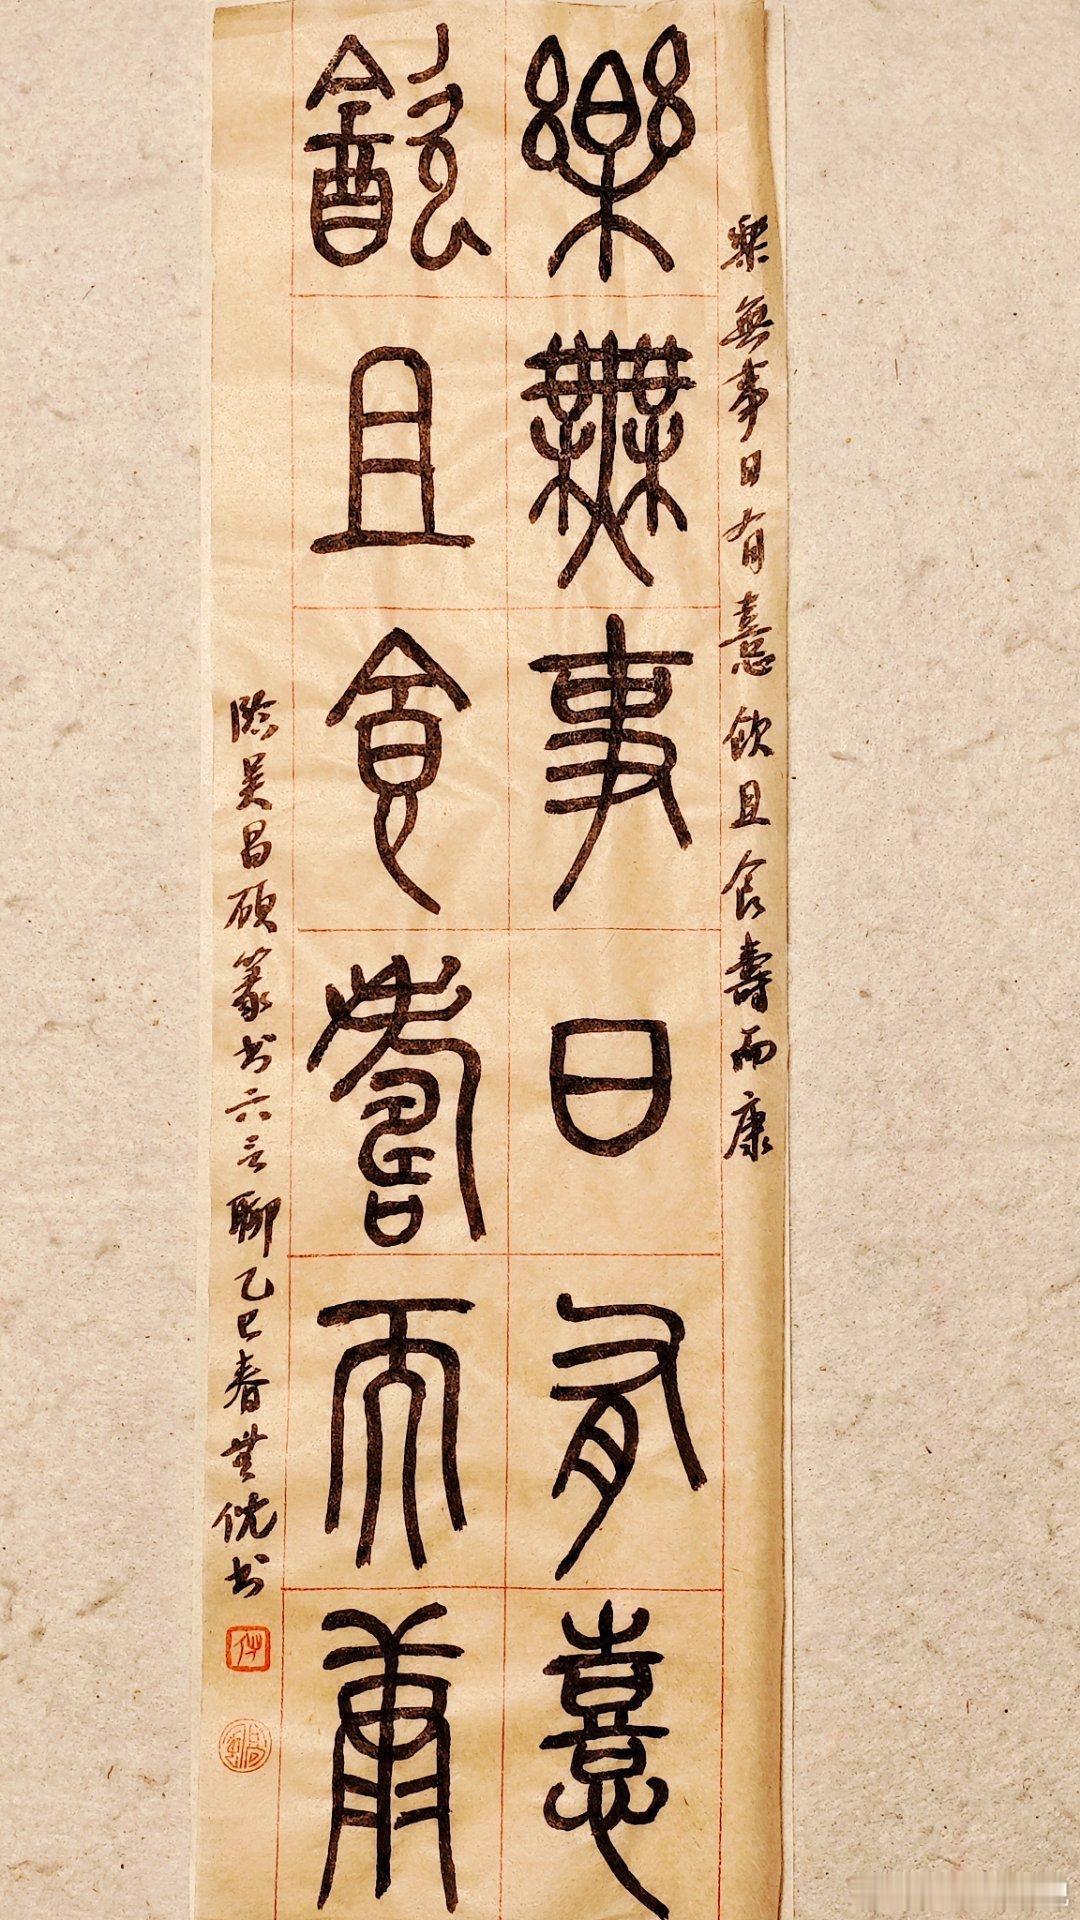 樂無事日有憙飲且食壽而康
樂無事日有憙
飲且食壽而康
臨吴昌硕篆书六言聊乙巳春無倪书